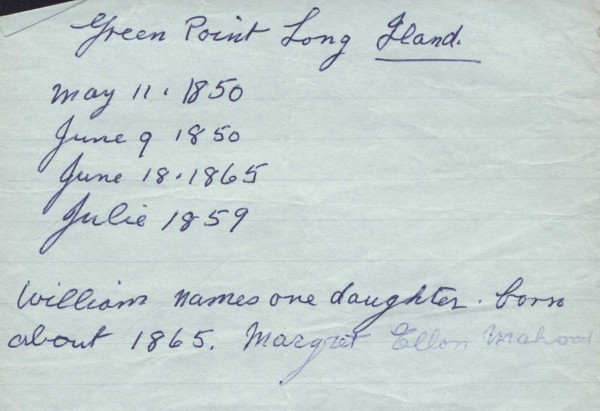 Green Point Long Iland.
May 11. 1850
June 9 1850
June 18. 1865
Julie 1859
William names one daughter. born
about 1865. Margret Ellon Mahood